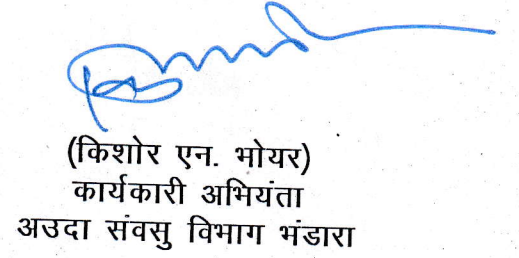 (किशोर एन. भोयर)
कार्यकारी अभियंता
अउदा संवसु विभाग भंडारा